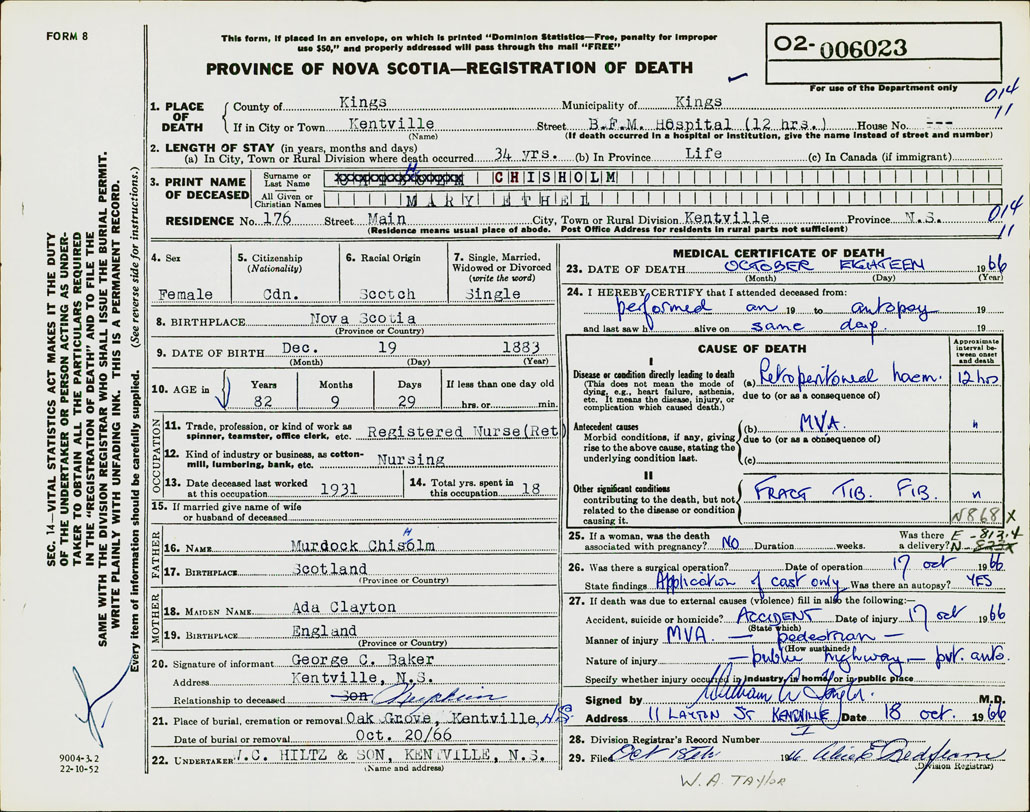 FORM 8
This form, if placed in an envelope, on which is printed "Dominion Statistics—Free, penalty for improper
use $50," and properly addressed will pass through the mail "FREE"
PROVINCE OF NOVA SCOTIA—REGISTRATION OF DEATH
02-006023
For use of the Department only
014
11
1. PLACE OF DEATH
County of Kings Municipality of Kings
If in City or Town Kentville Street B.F.M. Hospital (12 hrs.) House No. ---
(Name) (If death occurred in a hospital or institution, give the name instead of street and number)
2. LENGTH OF STAY (in years, months and days)
(a) In City, Town or Rural Division where death occurred 34 yrs. (b) In Province Life (c) In Canada (if immigrant)
3. PRINT NAME OF DECEASED
Surname or Last Name CHISHOLM
All Given or Christian Names MARY ETHEL
RESIDENCE No. 176 Street Main City, Town or Rural Division Kentville Province N.S.
(Residence means usual place of abode. Post Office Address for residents in rural parts not sufficient)
014
11
4. Sex
Female
5. Citizenship
(Nationality)
Cdn.
6. Racial Origin
Scotch
7. Single, Married, Widowed or Divorced
(write the word)
Single
8. BIRTHPLACE Nova Scotia
(Province or Country)
9. DATE OF BIRTH Dec. 19 1883
(Month) (Day) (Year)
10. AGE in Years Months Days If less than one day old
82 9 29 hrs. or min.
OCCUPATION
11. Trade, profession, or kind of work as
spinner, teamster, office clerk, etc. Registered Nurse(Ret
12. Kind of industry or business, as cotton-
mill, lumbering, bank, etc. Nursing
13. Date deceased last worked
at this occupation 1931
14. Total yrs. spent in
this occupation 18
15. If married give name of wife
or husband of deceased
FATHER
16. NAME Murdock Chisolm
H
17. BIRTHPLACE Scotland
(Province or Country)
MOTHER
18. MAIDEN NAME Ada Clayton
19. BIRTHPLACE England
(Province or Country)
20. Signature of informant George C. Baker
Address Kentville, N.S.
Relationship to deceased Son Nephew
21. Place of burial, cremation or removal Oak Grove, Kentville, N.S.
Date of burial or removal Oct. 20/66
22. UNDERTAKER W.C. HILTZ & SON, KENTVILLE, N.S.
(Name and address)
MEDICAL CERTIFICATE OF DEATH
23. DATE OF DEATH OCTOBER EIGHTEEN 1966
(Month) (Day) (Year)
24. I HEREBY CERTIFY that I attended deceased from:
performed an 19 to autopsy 19
and last saw h alive on same day. 19
CAUSE OF DEATH
Approximate interval between onset and death
I
Disease or condition directly leading to death
(This does not mean the mode of
dying, e.g., heart failure, asthenia,
etc. It means the disease, injury, or
complication which caused death.)
(a) Retroperitoneal haem. 12 hrs
due to (or as a consequence of)
Antecedent causes
Morbid conditions, if any, giving
rise to the above cause, stating the
underlying condition last.
(b) MVA. "
due to (or as a consequence of)
(c)
II
Other significant conditions
contributing to the death, but not
related to the disease or condition
causing it.
FRACT TIB. FIB. "
N868 X
25. If a woman, was the death
associated with pregnancy? NO Duration weeks.
Was there
a delivery?
E - 813.4
26. Was there a surgical operation? Date of operation 17 oct 1966
State findings Application of cast only Was there an autopsy? YES
27. If death was due to external causes (violence) fill in also the following:—
Accident, suicide or homicide? ACCIDENT Date of injury 17 oct 1966
(State which)
Manner of injury MVA — pedestrian —
(How sustained)
Nature of injury — public highway — pvt. auto.
Specify whether injury occurred in industry, in home, or in public place
Signed by William A Taylor. M.D.
Address 11 LAYTON ST KENTVILLE Date 18 oct. 1966
28. Division Registrar's Record Number
29. Filed Oct 18th 1966
(Division Registrar)
W. A. TAYLOR
SEC. 14—VITAL STATISTICS ACT MAKES IT THE DUTY
OF THE UNDERTAKER OR PERSON ACTING AS UNDER-
TAKER TO OBTAIN ALL THE PARTICULARS REQUIRED
IN THE "REGISTRATION OF DEATH" AND TO FILE THE
SAME WITH THE DIVISION REGISTRAR WHO SHALL ISSUE THE BURIAL PERMIT.
WRITE PLAINLY WITH UNFADING INK. THIS IS A PERMANENT RECORD.
Every item of information should be carefully supplied. (See reverse side for instructions.)
9004-3.2
22-10-52